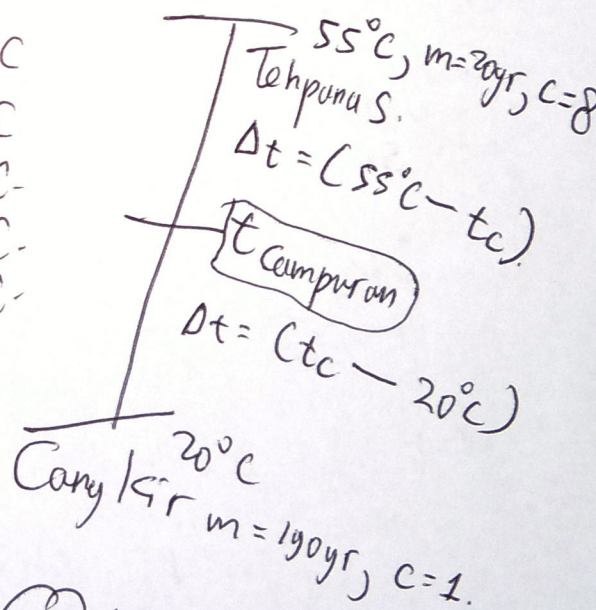 55°C, m=20gr, c=8
Teh panas.
Δt = (55°C - tc).
t campuran
Δt = (tc - 20°C)
20°C
m = 190gr, c=1.